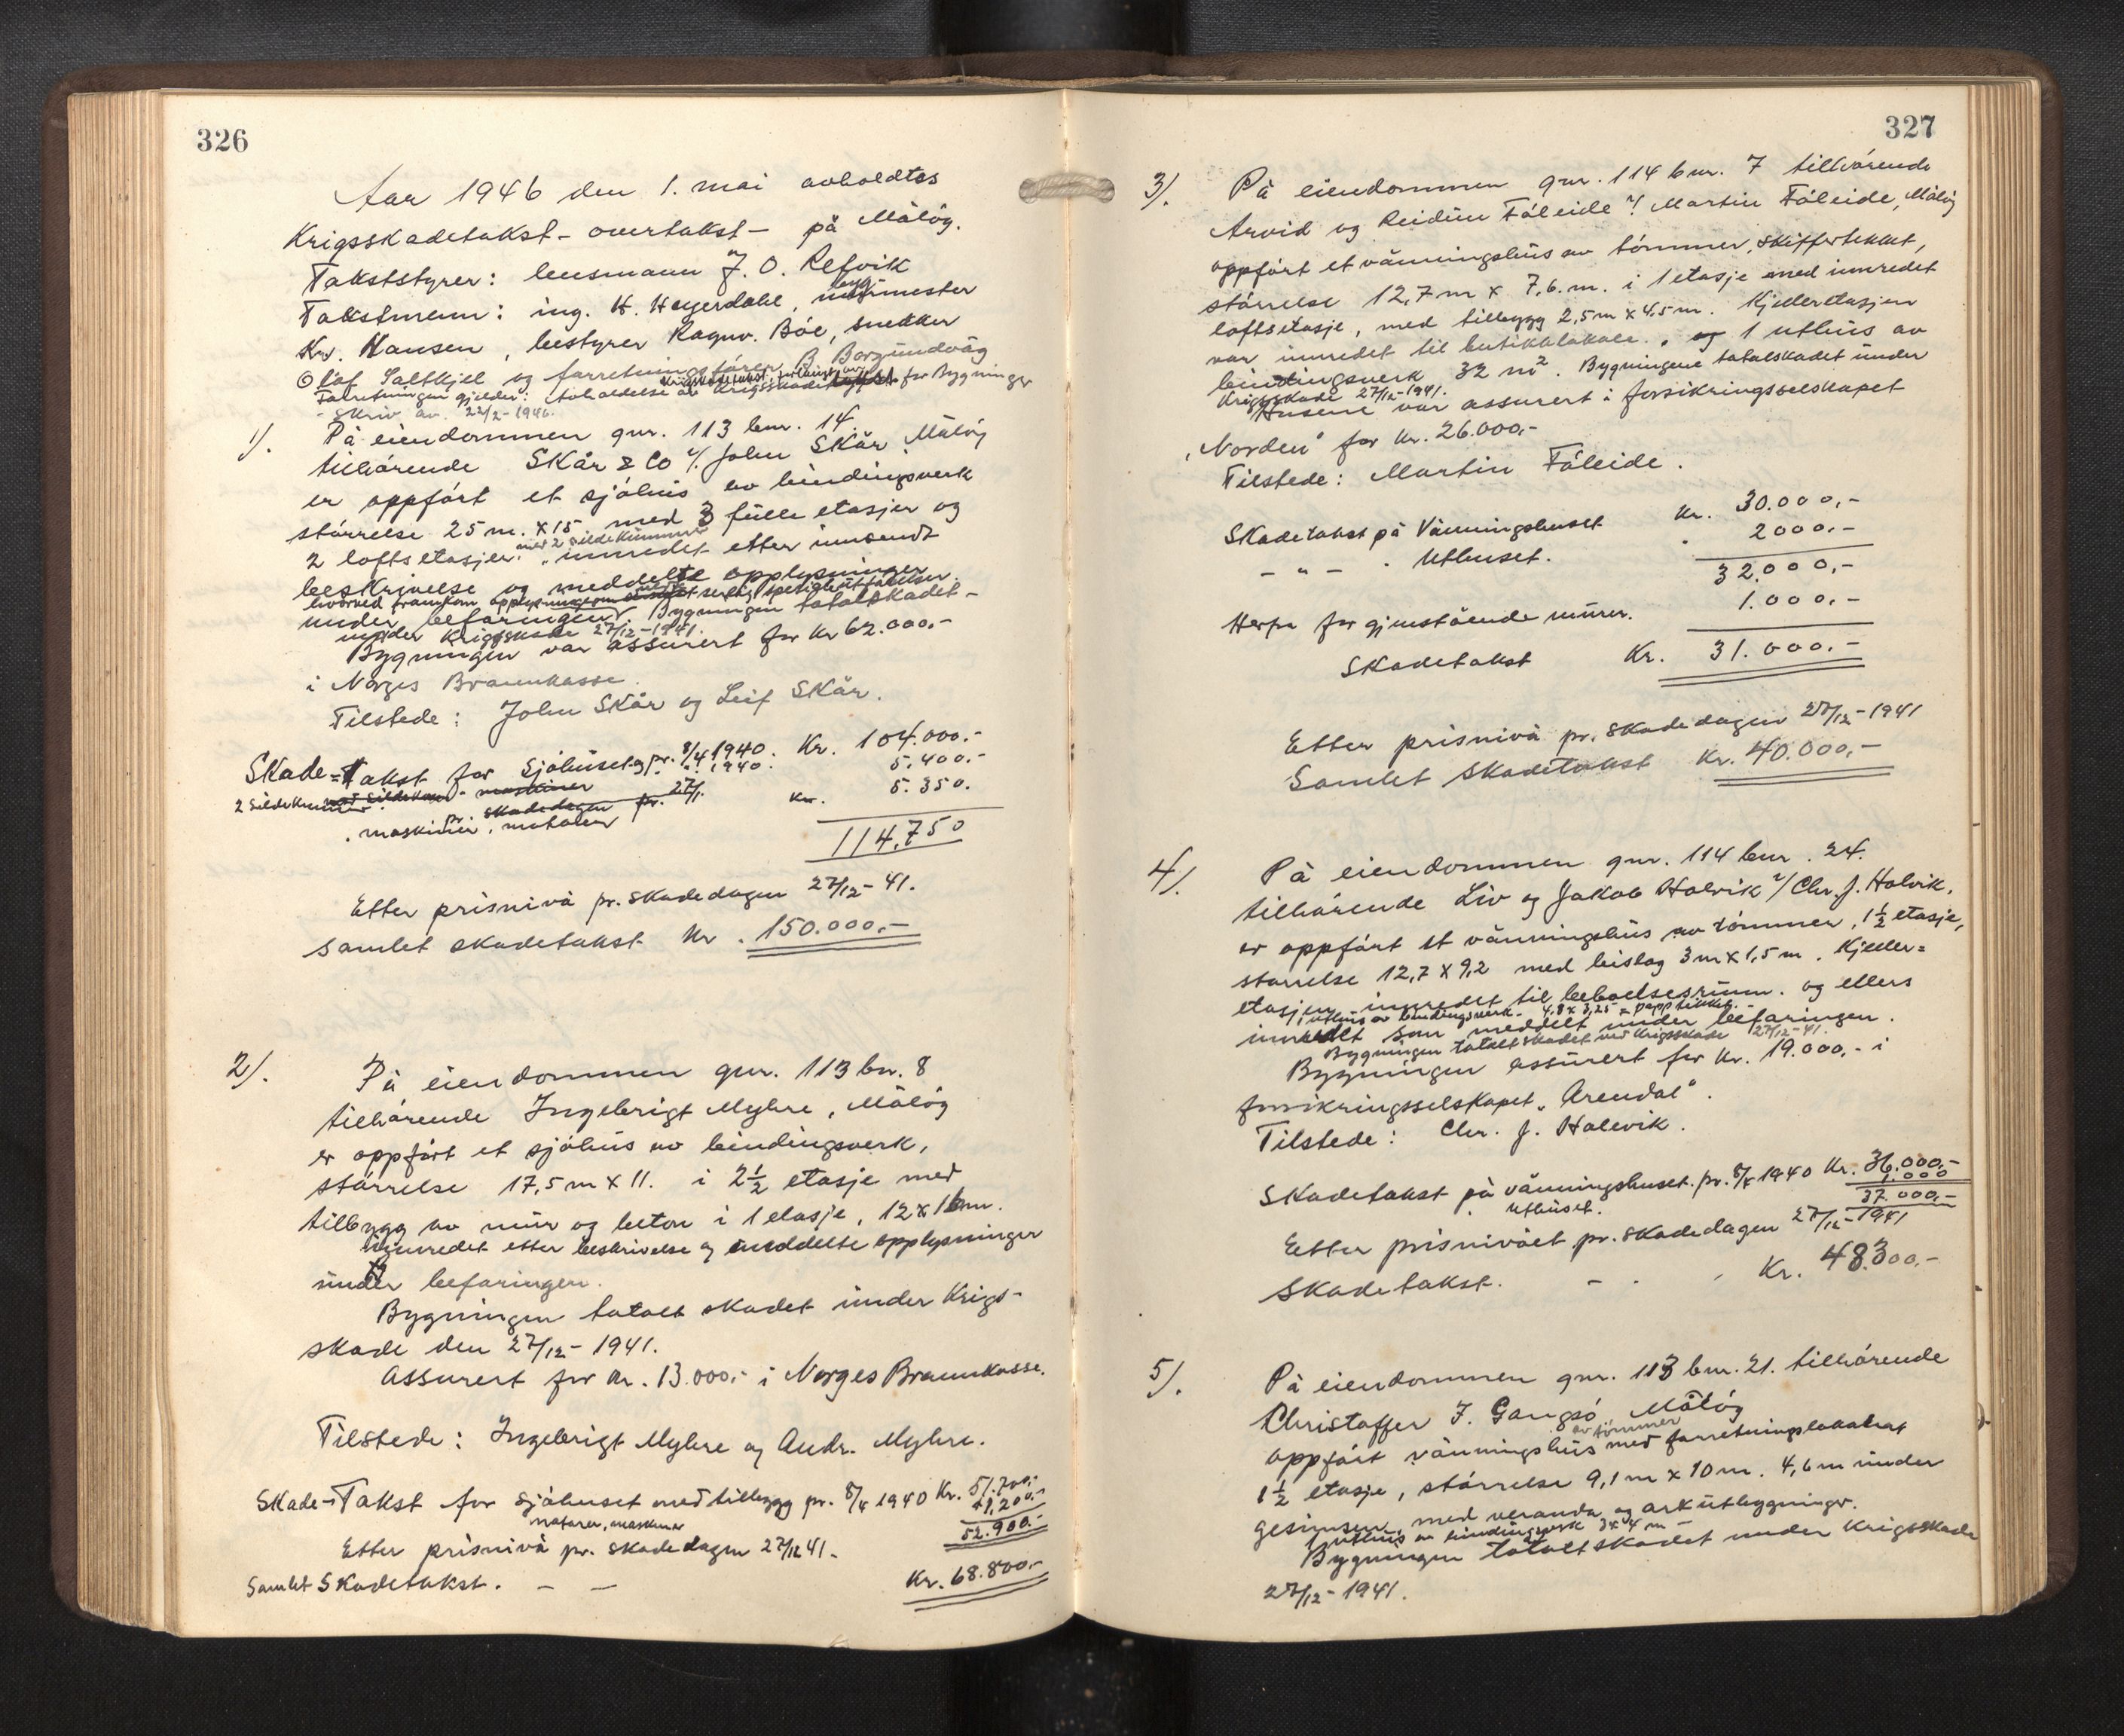 326
Aar 1946 den 1. mai avholdtes
Krigsskadetakst - overtakst - på Måløy.
Takststyrer: lensmann J. O. Refvik
Takstmenn: ing. H. Heyerdahl, byg-
mester
Kr. Hansen, bestyrer Ragnv. Böe, snekker
Olaf Saltkjel og forretningsförer B. Borgundvåg
Forretningen gjelder: avholdelse av Krigsskade for Bygninger
skriv av 22/2-1946.
1). På eiendommen gnr. 113 bnr. 14.
tilhörende Skår & Co v/ John Skår Måløy
er oppfört et sjöhus av bindingsverk
störrelse 25 m. x 15 med 3 fulle etasjer og
2 loftsetasjer. med 2 sildekummer innredet etter innsendt
beskrivelse og meddelte opplysninger
under befaringen. Bygningen totalskadet
under Krigsskade 27/12-1941.
Bygningen var assurert for Kr 62.000.-
i Norges Brannkasse.
Tilstede: John Skår og Leif Skår.
Skade=Takst for Sjöhuset pr. 8/4 1940. Kr. 104.000.-
2 Sildekummer 1940. 5.400.-
maskiner, motorer kr. 5.350.
114.750
Etter prisnivå pr. skadedagen 27/12-41.
samlet skadetakst Kr. 150.000,-
2). På eiendommen gnr. 113 bn. 8
tilhörende Ingebrigt Myhre, Måløy
er oppfört et sjöhus av bindingsverk,
störrelse 17,5 m x 11. i 2 1/2 etasje med
tilbygg av mur og beton i 1 etasje, 12 x 16 m.
innredet etter beskrivelse og meddelte opplysninger
under befaringen.
Bygningen totalt skadet under Krigs-
skade den 27/12-1941.
Assurert for kr. 13.000,- i Norges Brannkasse.
Tilstede: Ingebrigt Myhre og Andr. Myhre.
Skade-Takst for sjöhuset med tilbygg pr. 8/4 1940 Kr. 51.700.-
motorer, maskiner 1,200.-
52.900.-
Etter prisnivå pr. skadedagen 27/12 41.
Samlet Skadetakst. - - Kr. 68.800.-
327
3). På eiendommen gnr. 114 bnr. 7 tilhörende
Arvid og Reidun Föleide v/ Martin Föleide, Måløy
oppfört et våningshus av tömmer, skiffertekket,
störrelse 12,7 m x 7,6. m. i 1 etasje med innredet
loftsetasje, med tilbygg 2,5 m x 4,5 m. Kjelleretasjen
var innredet til butikklokale. og 1 uthus av
bindingsverk 32 m2. Bygningene totalskadet under
Krigsskade 27/12-1941.
Husene var assurert i forsikringsselskapet
"Norden" for Kr. 26.000.-
Tilstede: Martin Föleide.
Skadetakst på Våningshuset Kr. 30.000,-
- " - . Uthuset. 2000.-
32.000,-
Herfra for gjenstående murer. 1.000.-
Skadetakst Kr. 31.000.-
Etter prisnivå pr. skadedagen 27/12-1941
Samlet Skadetakst Kr. 40.000,-
4). På eiendommen gnr. 114 bnr. 24.
tilhörende Liv og Jakob Holvik v/ Chr. J. Holvik.
er oppfört et våningshus av tömmer, 1 1/2 etasje,
störrelse 12,7 x 9,2 med bislag 3 m x 1,5 m. Kjeller=
etasjen innredet til beboelsesrum. og ellers
1 uthus av bindingsverk - 4,8 x 3,25 - papptekket.
innredet som meddelt under befaringen.
Bygningen totalt skadet ved Krigsskade 27/12-41.
Bygningen assurert for Kr. 19.000,- i
forsikringsselskapet "Arendal".
Tilstede: Chr. J. Holevik.
Skadetakst på våningshuset. pr. 8/4 1940 Kr. 36.000,-
uthuset. 1.000
37.000,-
Etter prisnivået pr. skadedagen 27/12-1941
Skadetakst. - Kr. 48.300.-
5). På eiendommen gnr. 113 bnr. 21. tilhörende
Christoffer J. Gangsö Måløy
oppfört våningshus av tömmer med forretningslokaler
1 1/2 etasje, störrelse 9,1 m x 10 m. 4,6 m under
gesimsen, med veranda og arkutbygninger.
1 uthus av bindingsverk 3 x 4 m -
Bygningen totalt skadet under krigsskade
27/12-1941.